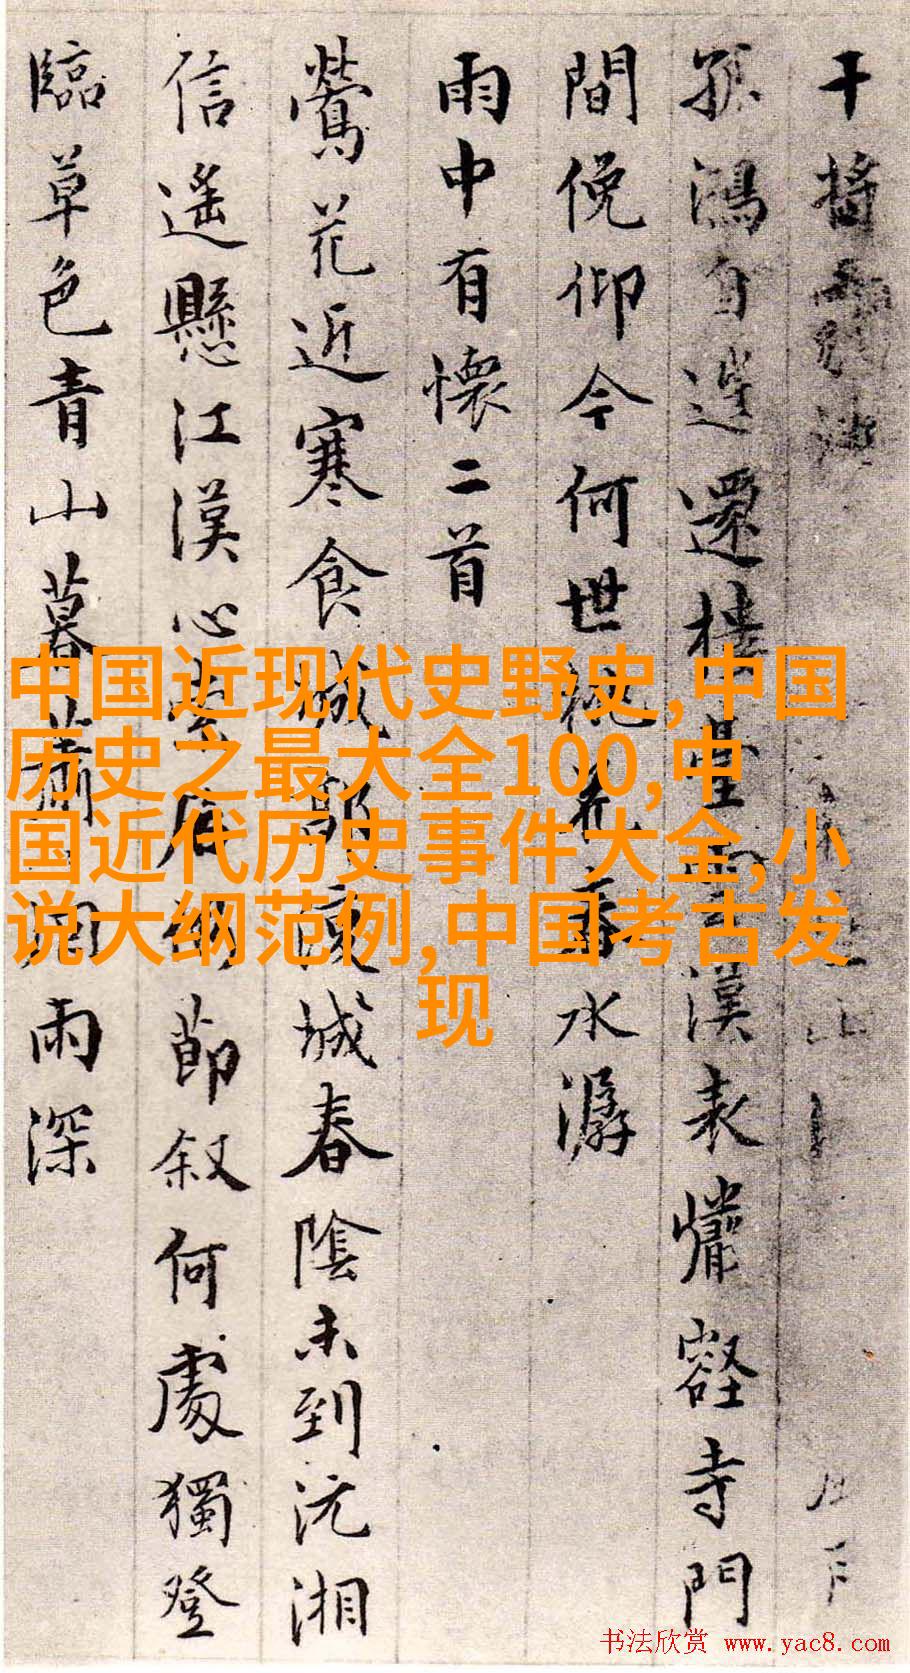 干將
孤鴻自還樓臺漢表巖壑寺門
間俛仰今何世花春水潺
雨中有懷二首
鶯花近寒食城郭城春陰未到沅湘
信遙懸江漢心節叙何處獨登
臨草色青山暮雨深
中国近现代史野史,中国
历史之最大全100,中
国近代历史事件大全,小
说大纲范例,中国考古发
现
书法欣赏 www.yac8.com